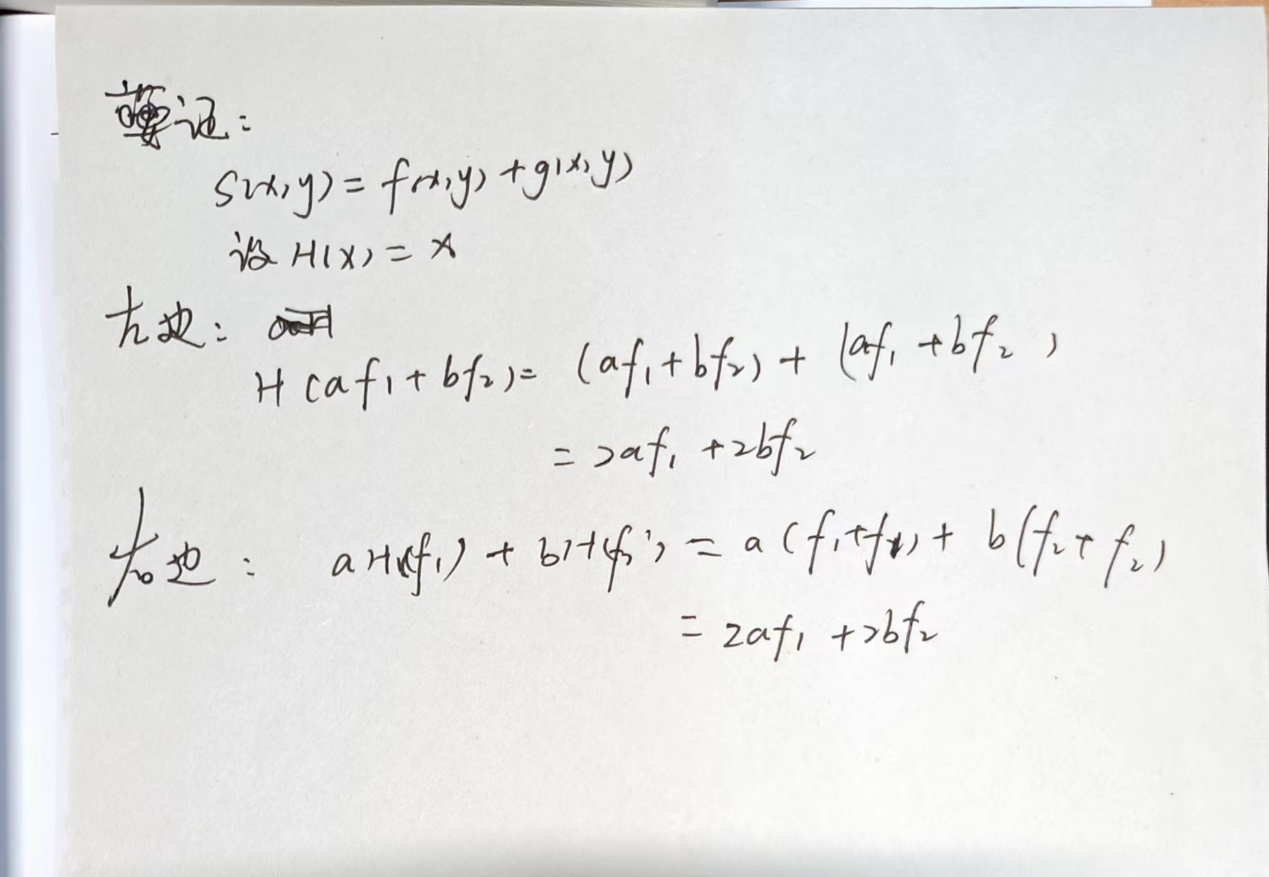 要证:
S(x,y) = f(x,y) + g(x,y)
设 H(x) = x
左边:
H(af₁ + bf₂) = (af₁ + bf₂) + (af₁ + bf₂)
= 2af₁ + 2bf₂
右边: aH(f₁) + bH(f₂) = a(f₁+f₁) + b(f₂+f₂)
= 2af₁ + 2bf₂